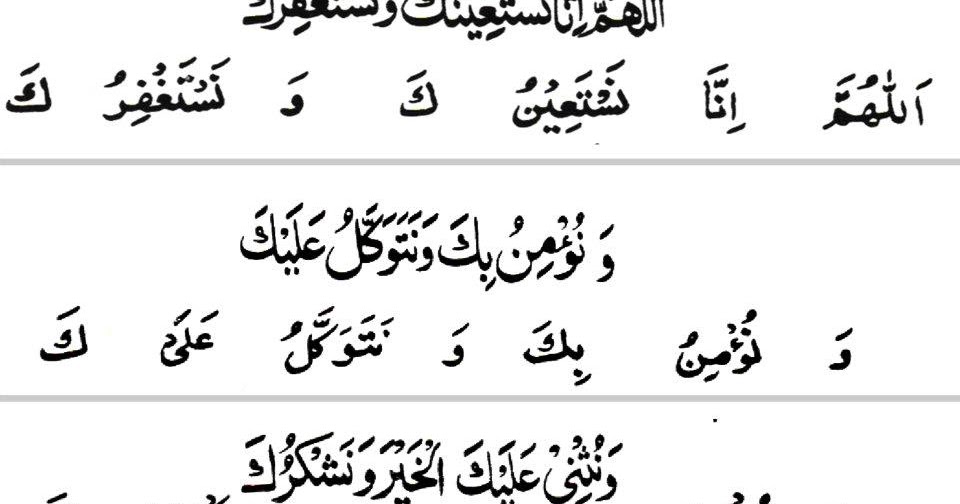 اَللّٰهُمَّ اِنَّا نَسْتَعِيْنُكَ وَنَسْتَغْفِرُكَ
اَللّٰهُمَّ اِنَّا نَسْتَعِيْنُ كَ وَ نَسْتَغْفِرُ كَ
وَ نُؤْمِنُ بِكَ وَنَتَوَكَّلُ عَلَيْكَ
وَ نُؤْمِنُ بِكَ وَ نَتَوَكَّلُ عَلٰى كَ
وَنُثْنِيْ عَلَيْكَ الْخَيْرَ وَنَشْكُرُكَ